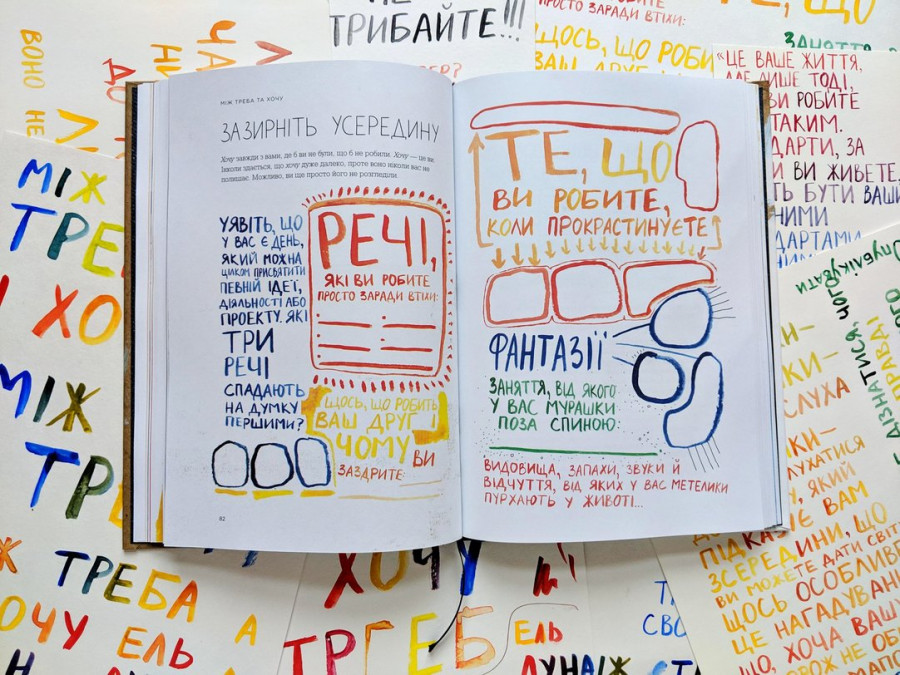 МІЖ ТРЕБА ТА ХОЧУ
ЗАЗИРНІТЬ УСЕРЕДИНУ
Хочу завжди з вами, де б ви не були, що б не робили. Хочу — це ви.
Інколи здається, що хочу дуже далеко, проте воно ніколи вас не
полишає. Можливо, ви ще просто його не розгледіли.
УЯВІТЬ, ЩО
У ВАС Є ДЕНЬ,
ЯКИЙ МОЖНА
ЦІЛКОМ ПРИСВЯТИТИ
ПЕВНІЙ ІДЕЇ,
ДІЯЛЬНОСТІ АБО
ПРОЕКТУ. ЯКІ
ТРИ
РЕЧІ
СПАДАЮТЬ
НА ДУМКУ
ПЕРШИМИ?
РЕЧІ,
ЯКІ ВИ РОБИТЕ
ПРОСТО ЗАРАДИ ВТІХИ:
ЩОСЬ, ЩО РОБИТЬ
ВАШ ДРУГ І
ЧОМУ ВИ
ЗАЗДРИТЕ:
82
ТЕ, ЩО
ВИ РОБИТЕ,
КОЛИ ПРОКРАСТИНУЄТЕ
ФАНТАЗІЇ
ЗАНЯТТЯ, ВІД ЯКОГО
У ВАС МУРАШКИ
ПОЗА СПИНОЮ:
ВИДОВИЩА, ЗАПАХИ, ЗВУКИ Й
ВІДЧУТТЯ, ВІД ЯКИХ У ВАС МЕТЕЛИКИ
ПУРХАЮТЬ У ЖИВОТІ...
НЕ
ТРИБАЙТЕ!!!
ПРОСТО ЗАРАДИ ВТІХИ:
ТЕ, ЩО
ЩОСЬ, ЩО РОБИ
ВАШ ДРУГ
ЗАНЯТТЯ
"ЦЕ ВАШЕ ЖИТТЯ,
ЛИШЕ ТОДІ,
ВИ РОБИТЕ
ТАКИМ.
ДАРТИ, ЗА
И ВИ ЖИВЕТЕ,
ТЬ БУТИ ВАШИ
НИМИ
ДАРТАМИ
ВОНО НЕ
МІЖ
ТРЕ
ХО
МІЖ
ТР
ТРЕБА
ХОЧУ
ЕЛЬ
А
ХО
ТРГЕБ
ЕЛЬ
ДУНАЇЖ
СВО
Опублікувати
ДІЗНАТИСЯ, ЧОГ
ПРАВДІ
СЛУХА
ЛУХАТИСЯ
У, ЯКИЙ
ПІДКАЗУЄ ВАМ
ЗСЕРЕДИНИ, ЩО
ВИ МОЖЕТЕ ДАТИ СВІТ
ЩОСЬ ОСОБЛИВЕ
ЦЕ НАГАДУВАН
ЩО, ХОЧА ВАШУ
РОЖ НЕ ОБ
МАПО